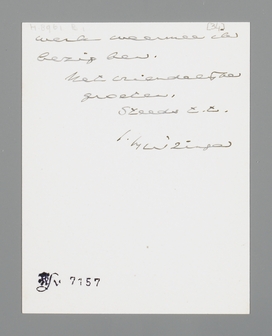 (36)
werk waarmee ik
bezig ben.
Met vriendelijke
groeten,
Steeds t.t.
J. Huizinga
7157